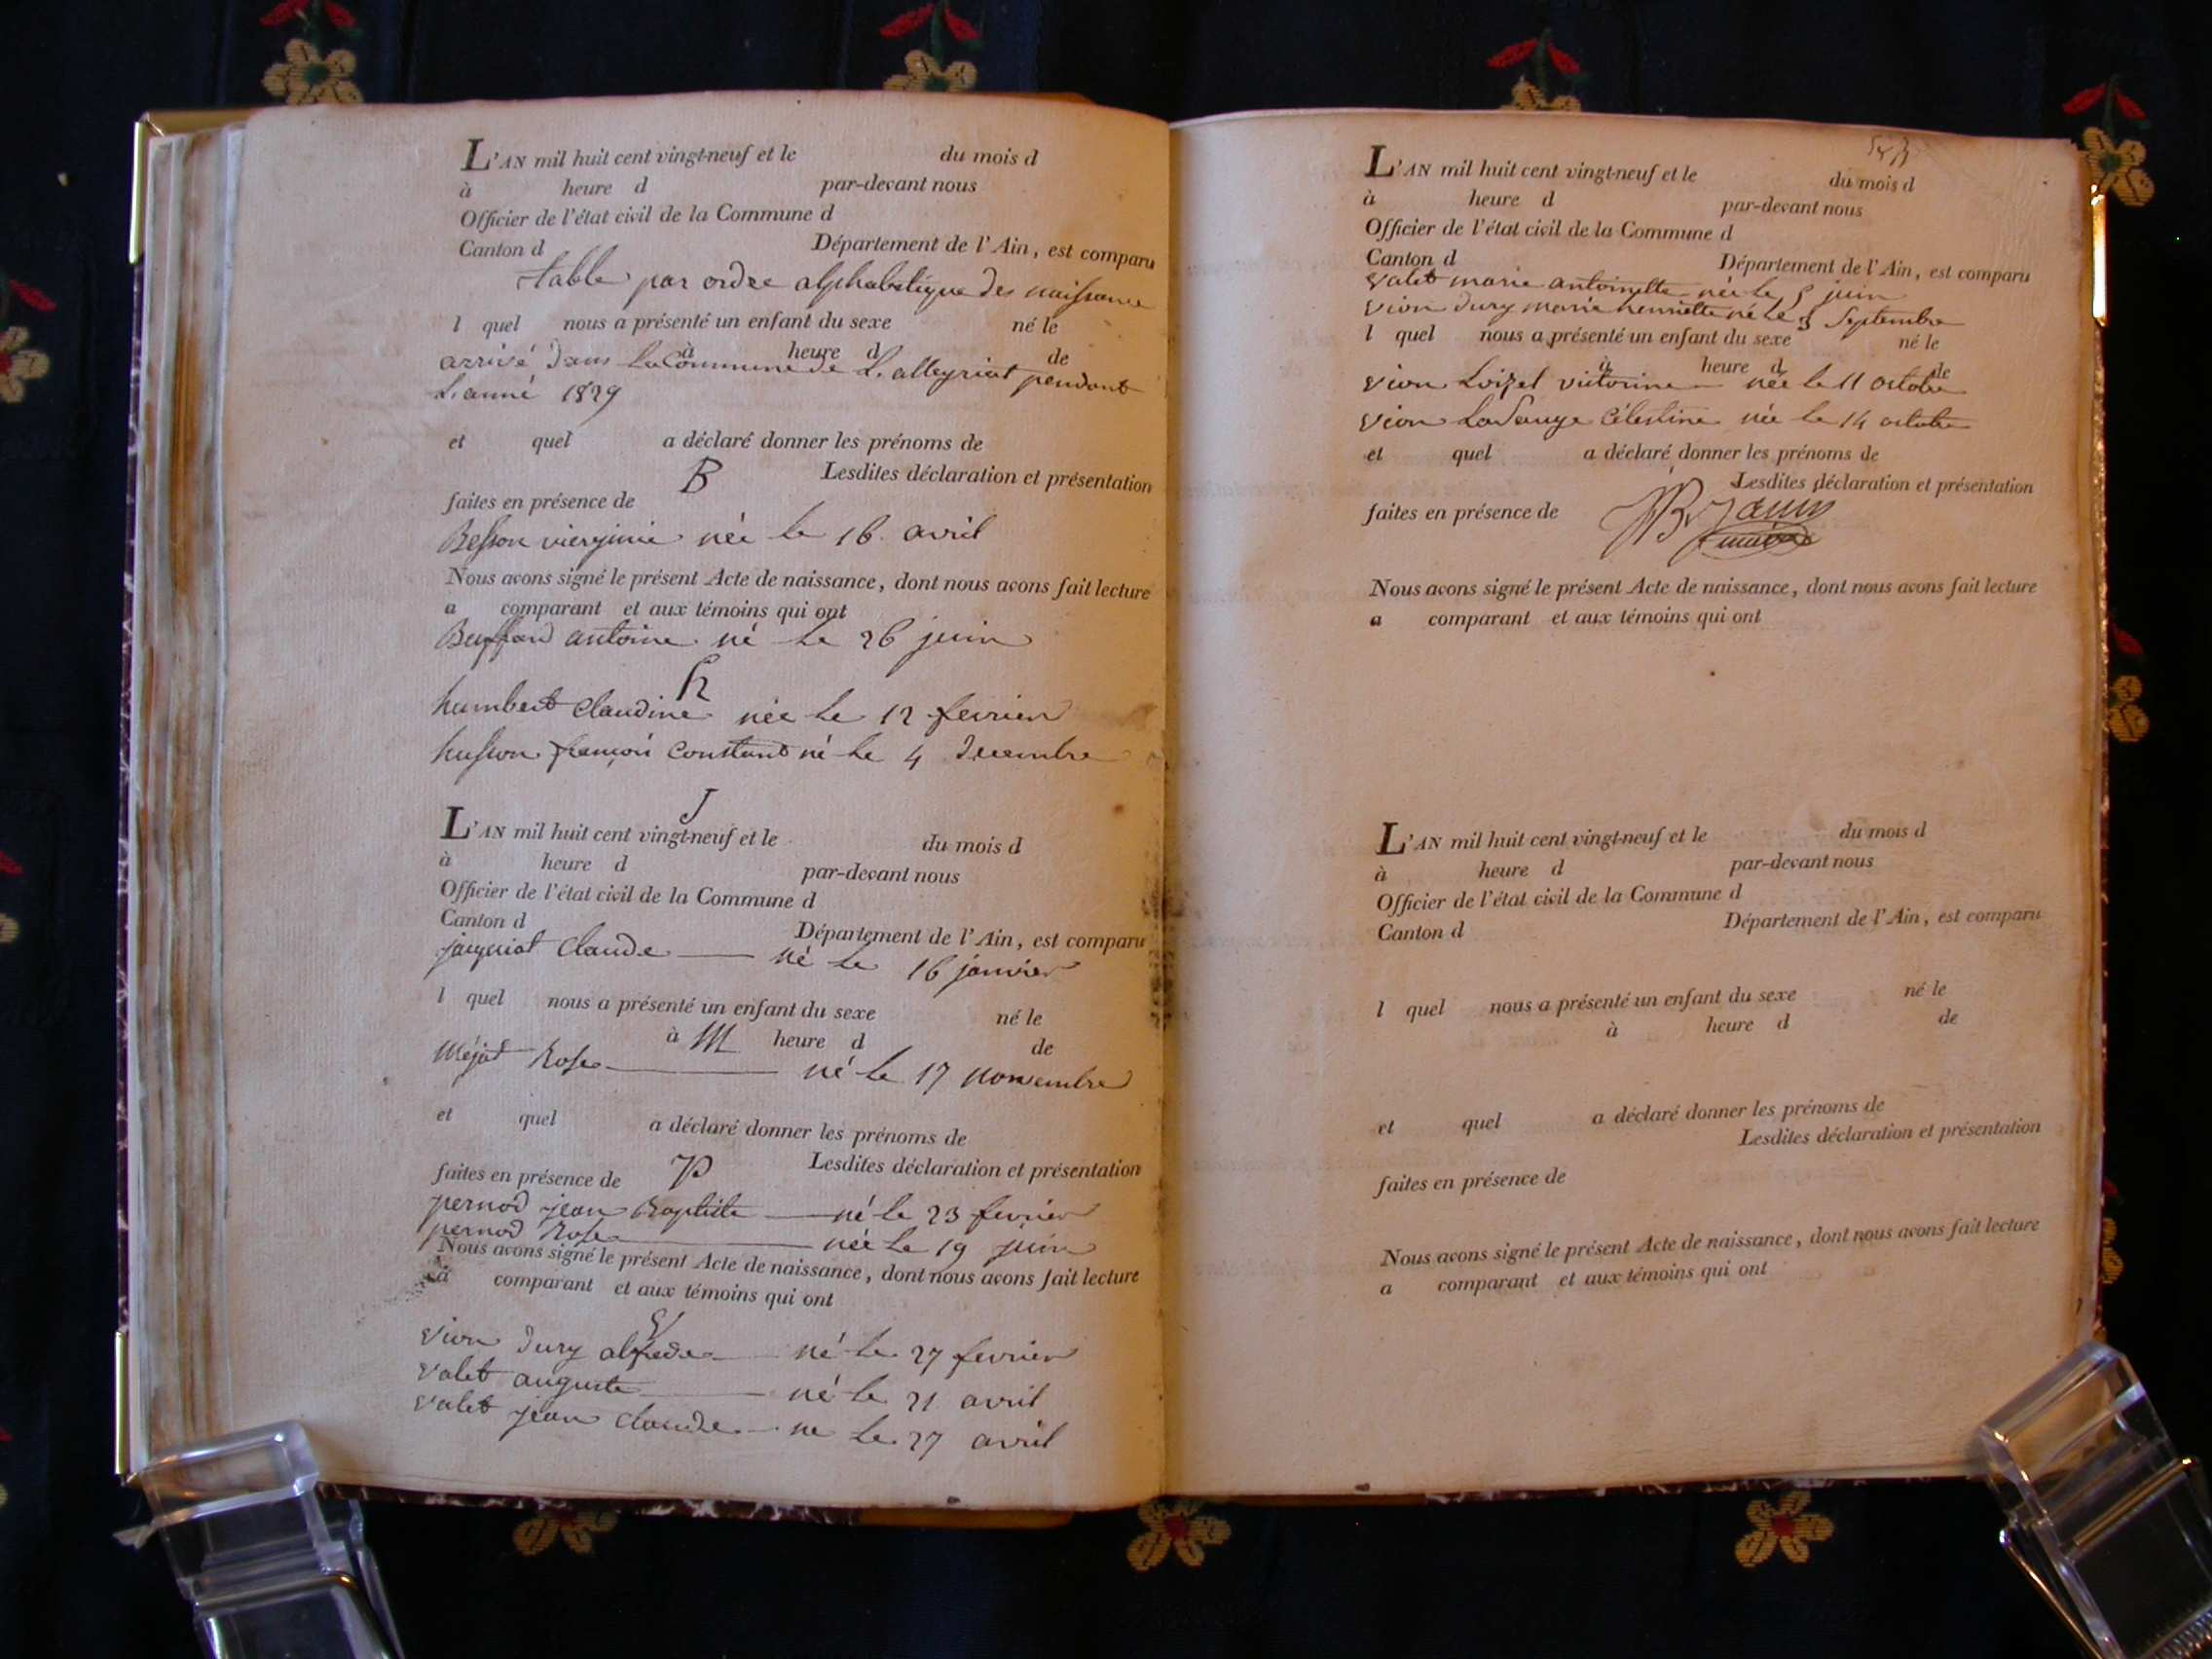 L'AN mil huit cent vingt-neuf et le du mois d
à heure d par-devant nous
Officier de l'état civil de la Commune d
Canton d Département de l'Ain, est comparu
table par ordre alphabetique des naissance
l quel nous a présenté un enfant du sexe né le
à heure d de
arrivé dans la Commune de L. alleyriat pendant
L. anné 1829
et quel a déclaré donner les prénoms de
B Lesdites déclaration et présentation
faites en présence de
Besson vierginie née le 16 avril
Nous avons signé le présent Acte de naissance, dont nous avons fait lecture
a comparant et aux témoins qui ont
Buffard antoine né le 26 juin
h
humbert Claudine née le 12 fevrier
husson françois Constant né le 4 Decembre
J
L'AN mil huit cent vingt-neuf et le du mois d
à heure d par-devant nous
Officier de l'état civil de la Commune d
Canton d Département de l'Ain, est comparu
jaquiot Claude né le 16 janvier
l quel nous a présenté un enfant du sexe né le
à M heure d de
Méjat Rose né le 17 novembre
et quel a déclaré donner les prénoms de
P Lesdites déclaration et présentation
faites en présence de
pernod jean Baptiste né le 23 fevrier
pernod Rose née le 19 juin
Nous avons signé le présent Acte de naissance, dont nous avons fait lecture
a comparant et aux témoins qui ont
V
vion Dury alfrede né le 27 fevrier
valet auguste né le 21 avril
valet jean claude ne le 27 avril
L'AN mil huit cent vingt-neuf et le du mois d
à heure d par-devant nous
Officier de l'état civil de la Commune d
Canton d Département de l'Ain, est comparu
valet marie antoinette née le 5 juin
vion Dury marie henriette né le 3 Septembre
l quel nous a présenté un enfant du sexe né le
à heure d de
vion Loizel victorine née le 11 octobre
vion Lasauge Célestine née le 14 octobre
et quel a déclaré donner les prénoms de
Lesdites déclaration et présentation
faites en présence de
Nous avons signé le présent Acte de naissance, dont nous avons fait lecture
a comparant et aux témoins qui ont
L'AN mil huit cent vingt-neuf et le du mois d
à heure d par-devant nous
Officier de l'état civil de la Commune d
Canton d Département de l'Ain, est comparu
l quel nous a présenté un enfant du sexe né le
à heure d de
et quel a déclaré donner les prénoms de
Lesdites déclaration et présentation
faites en présence de
Nous avons signé le présent Acte de naissance, dont nous avons fait lecture
a comparant et aux témoins qui ont